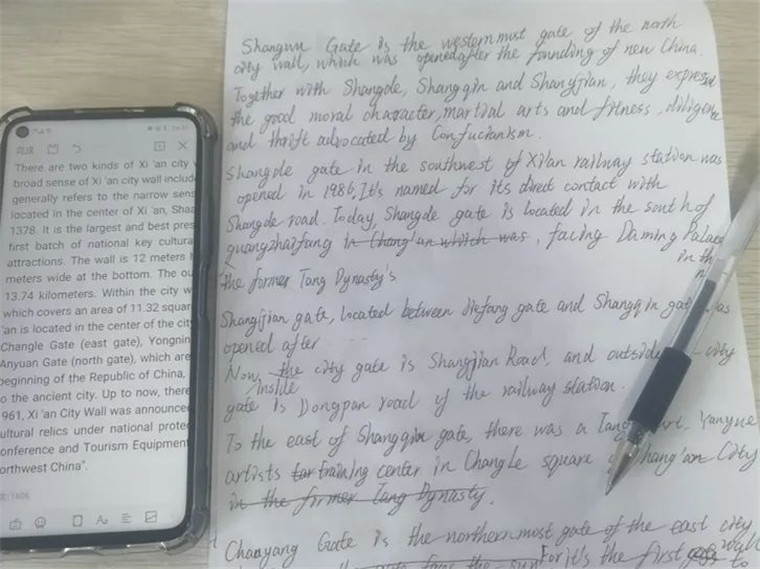 完成
There are two kinds of Xi 'an city
broad sense of Xi 'an city wall includ
generally refers to the narrow sens
located in the center of Xi 'an, Shaa
1378. It is the largest and best pres
first batch of national key cultura
attractions. The wall is 12 meters h
meters wide at the bottom. The ou
13.74 kilometers. Within the city w
which covers an area of 11.32 squar
'an is located in the center of the cit
Changle Gate (east gate), Yongnin
Anyuan Gate (north gate), which are
beginning of the Republic of China,
o the ancient city. Up to now, there
961, Xi 'an City Wall was announce
ultural relics under national prote
onference and Tourism Equipment
orthwest China".
Shangwu Gate is the westernmost gate of the north
city wall, which was opened after the founding of new China.
Together with Shangde, Shangqin and Shangjian, they expressed
the good moral character, martial arts and fitness, diligence
and thrift advocated by Confucianism.
Shangde gate in the southwest of Xi'an railway station was
opened in 1986, It's named for its direct contact with
Shangde road. Today, Shangde gate is located in the south of
guangzhaifang in Chang'an which was, facing Daming Palace
in th
the former Tang Dynasty's
Shangjian gate, located between Jiefang gate and Shangqin gate was
opened after
Now, the city gate is Shangjian Road, and outside city
inside
gate is Dongpan road of the railway station.
To the east of Shangqin gate, there was a Tang Yanyue
artists tar training center in Changle square Chang'an City
in the former Tang Dynasty.
Chaoyang Gate is the northernmost gate of the east city
wall
the sun For it's the first to